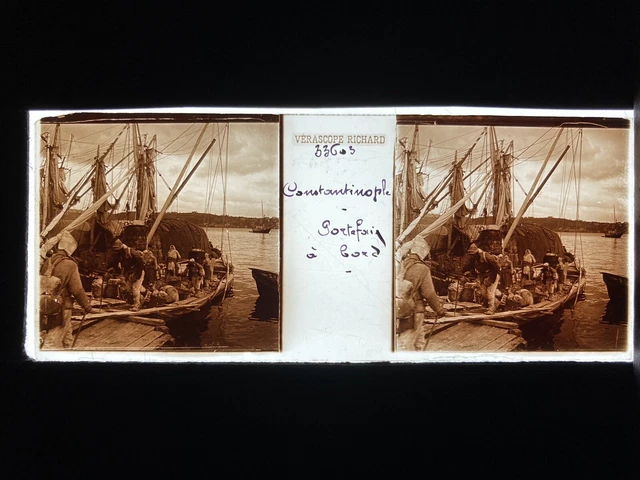 VERASCOPE RICHARD
33603
Constantinople
-
Portefaix
à bord
-